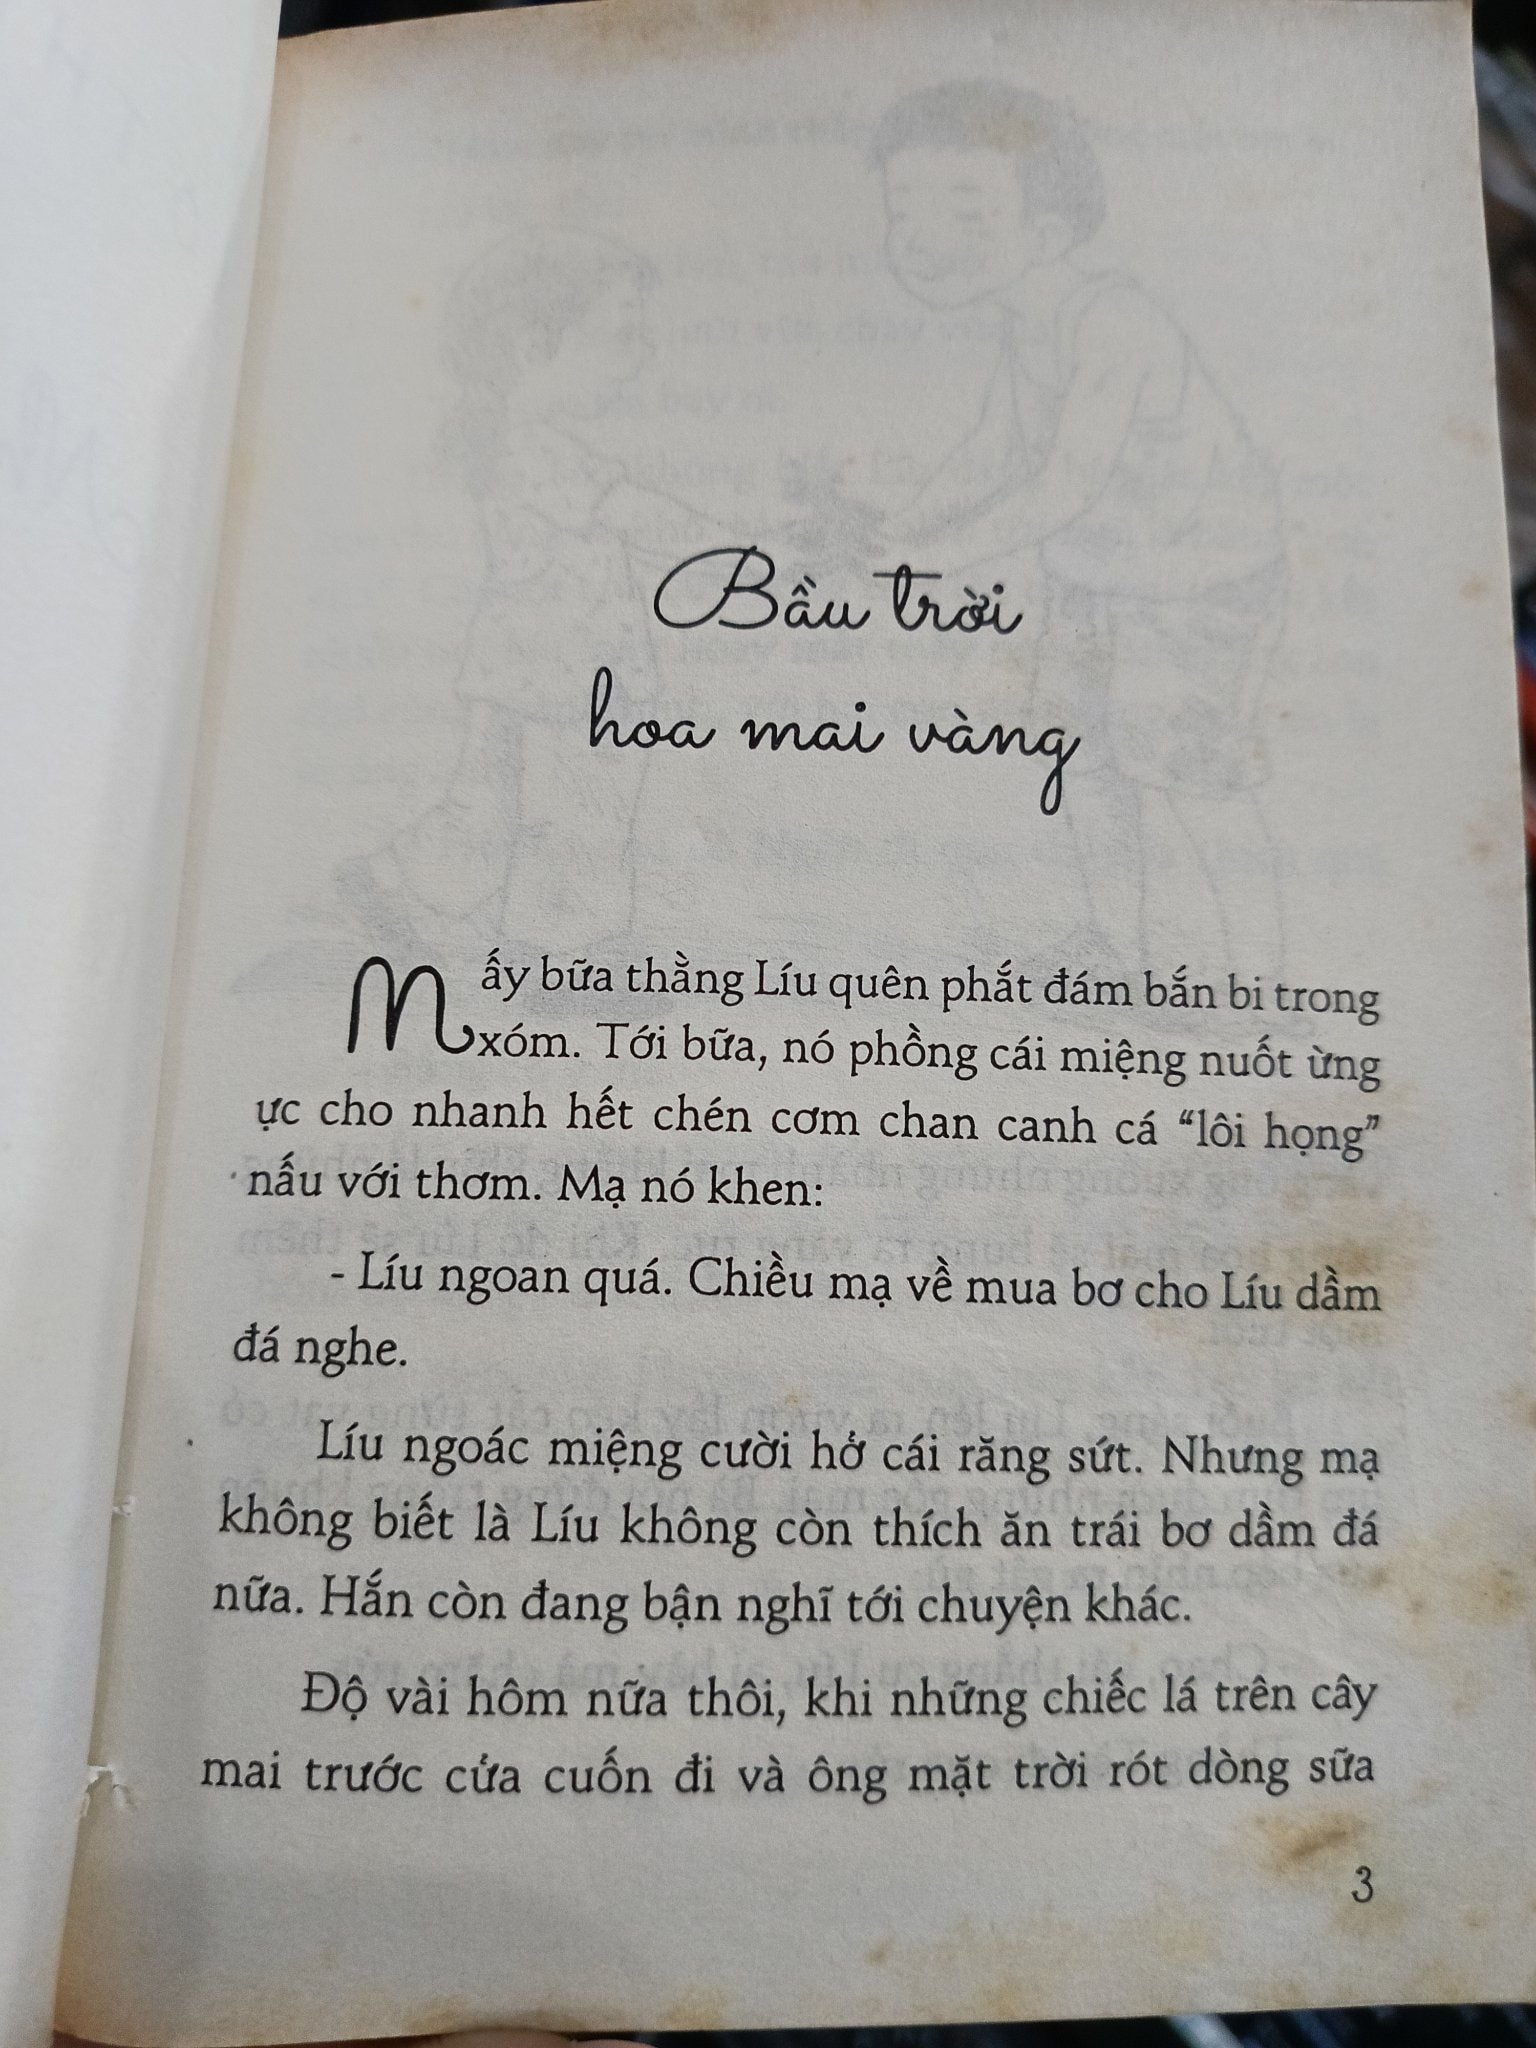 Bầu trời
hoa mai vàng
Mấy bữa thằng Líu quên phắt đám bắn bi trong
xóm. Tới bữa, nó phồng cái miệng nuốt ừng
ực cho nhanh hết chén cơm chan canh cá “lôi họng”
nấu với thơm. Mạ nó khen:
- Líu ngoan quá. Chiều mạ về mua bơ cho Líu dầm
đá nghe.
Líu ngoác miệng cười hở cái răng sứt. Nhưng mạ
không biết là Líu không còn thích ăn trái bơ dầm đá
nữa. Hắn còn đang bận nghĩ tới chuyện khác.
Độ vài hôm nữa thôi, khi những chiếc lá trên cây
mai trước cửa cuốn đi và ông mặt trời rót dòng sữa
3